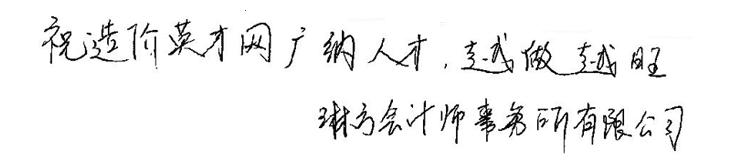 祝造价英才网广纳人才，越做越旺
琳方会计师事务所有限公司